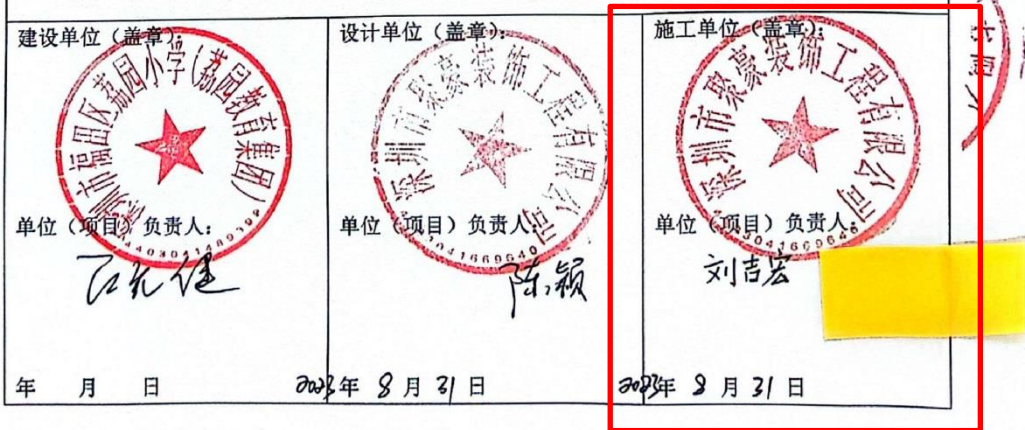 建设单位（盖章）：
深圳市福田区荔园小学（荔园教育集团）
单位（项目）负责人：
年 月 日
设计单位（盖章）：
深圳市聚豪装饰工程有限公司
单位（项目）负责人：
陈颖
2023年 8月 31日
施工单位（盖章）：
深圳市聚豪装饰工程有限公司
单位（项目）负责人：
刘吉宏
2023年 8月 31日